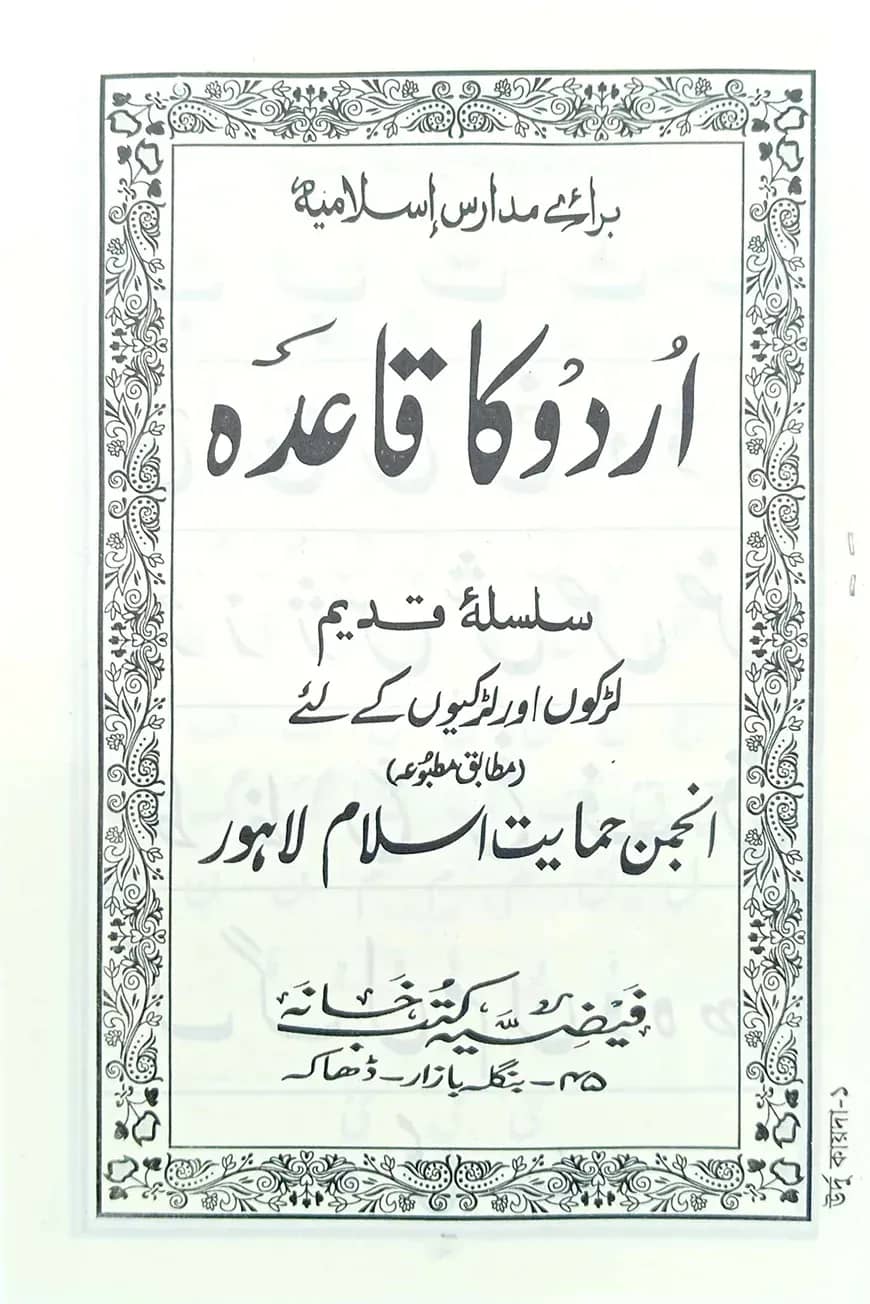 برائے مدارس إسلامیہ
اُردوُ کا قاعدہ
سلسلۂ قدیم
لڑکوں اور لڑکیوں کے لئے
(مطابق مطبوُعہ)
انجمن حمایت اسلام لاہور
فَیضِیَّہ کُتب خَانہَ
۴۵ - بنگلہ بازار - ڈھاکہ
উর্দু কায়দা-১